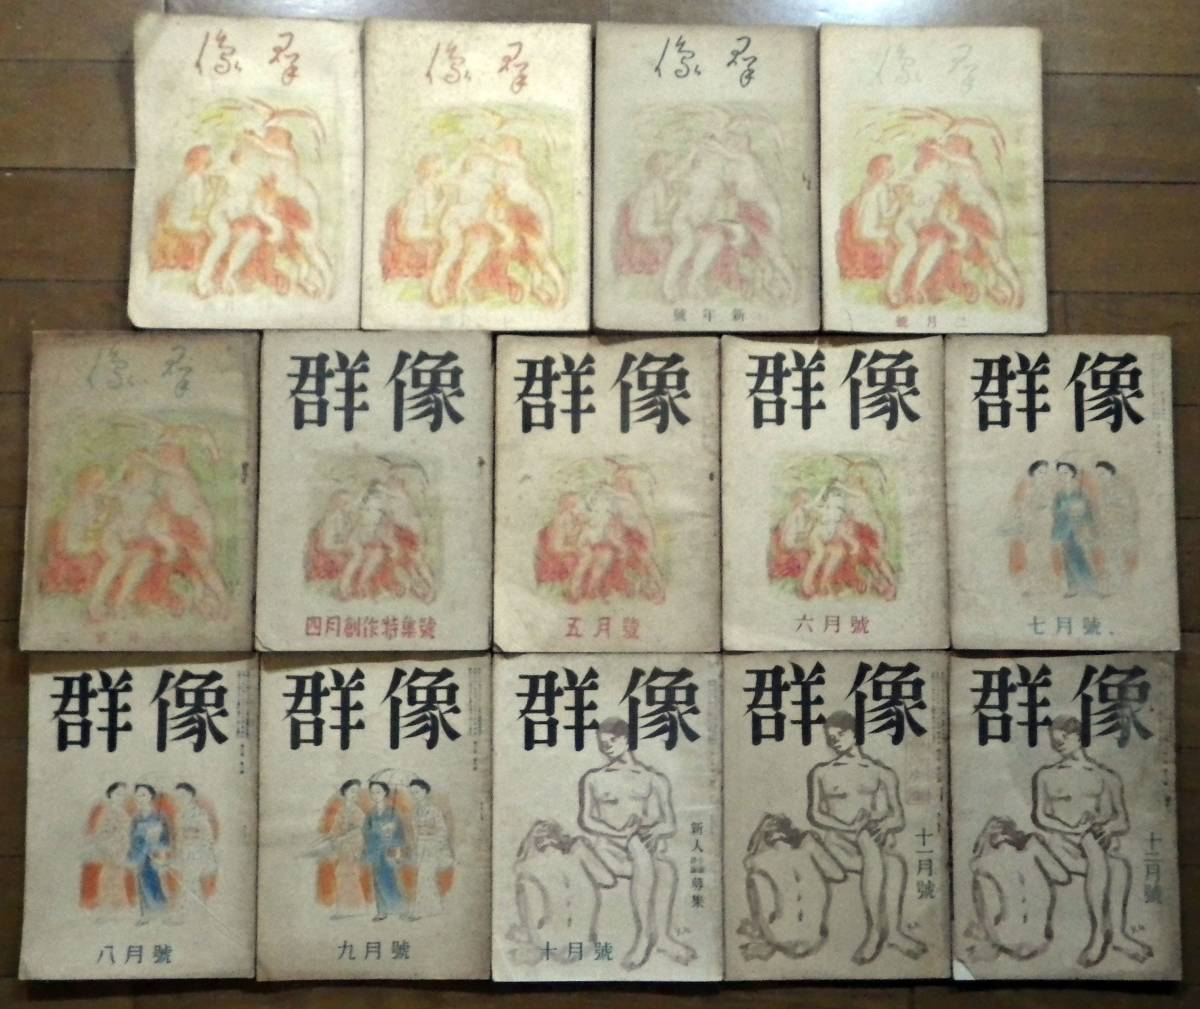 群像
群像
群像
新年號
群像
二月號
群像
群像
四月創作特集號
群像
五月號
群像
六月號
群像
七月號
群像
八月號
群像
九月號
群像
新人
募集
十月號
群像
十一月號
群像
十二月號